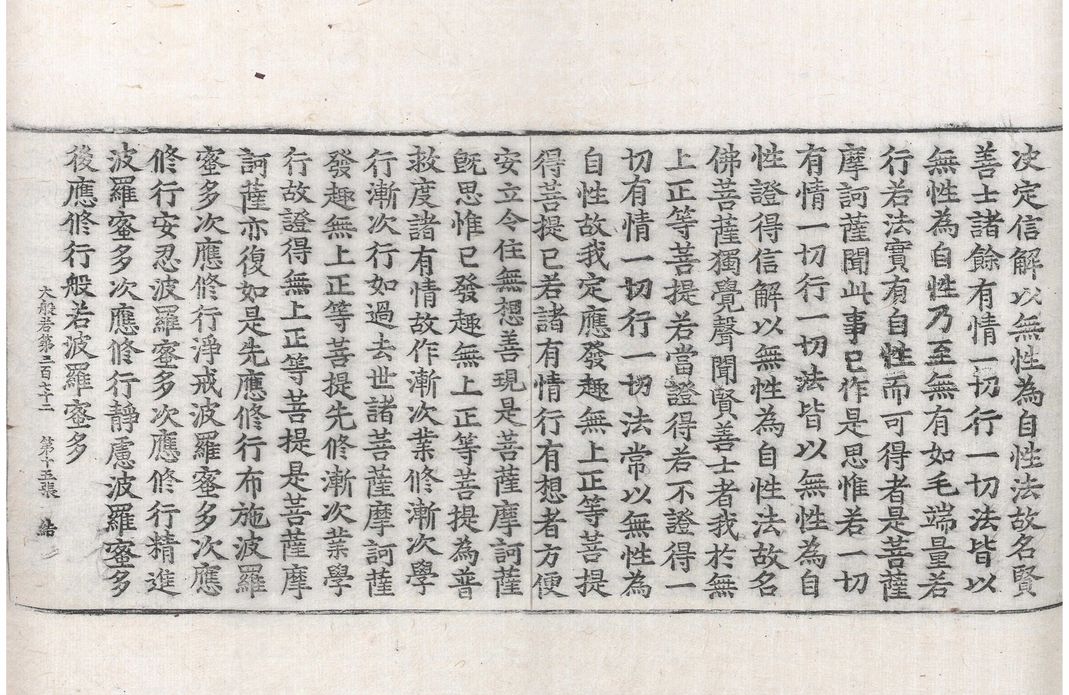 决定信解以無性為自性法故名賢
善士諸餘有情一切行一切法皆以
無性為自性乃至無有如毛端量若
行若法實有自性而可得者是菩薩
摩訶薩聞此事已作是思惟若一切
有情一切行一切法皆以無性為自
性證得信解以無性為自性法故名
佛菩薩獨覺聲聞賢善士者我於無
上正等菩提若當證得若不證得一
切有情一切行一切法常以無性為
自性故我定應發趣無上正等菩提
得菩提已若諸有情行有想者方便
安立令住無想善現是菩薩摩訶薩
旣思惟已發趣無上正等菩提為普
救度諸有情故作漸次業修漸次學
行漸次行如過去世諸菩薩摩訶薩
發趣無上正等菩提先修漸次業學
行故證得無上正等菩提是菩薩摩
訶薩亦復如是先應修行布施波羅
蜜多次應修行淨戒波羅蜜多次應
修行安忍波羅蜜多次應修行精進
波羅蜜多次應修行靜慮波羅蜜多
後應修行般若波羅蜜多
大般若第三百七十二 第十五張 結